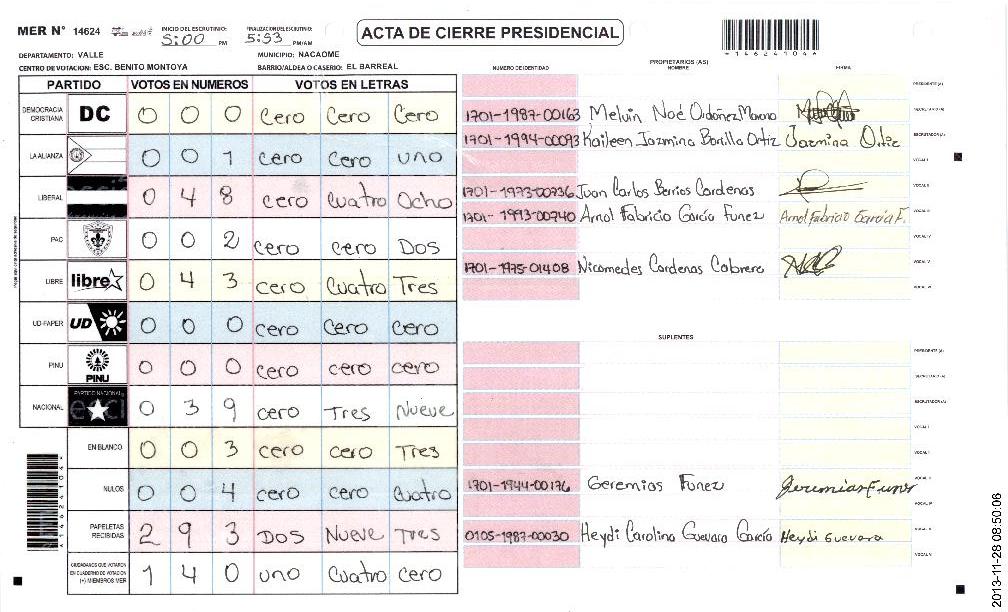 MER N° 14624 INICIO DEL ESCRUTINIO: 5:00 PM FINALIZACION DEL ESCRUTINIO: 5:53 PM/AM ACTA DE CIERRE PRESIDENCIAL
DEPARTAMENTO: VALLE MUNICIPIO: NACAOME
CENTRO DE VOTACION: ESC. BENITO MONTOYA BARRIO/ALDEA O CASERIO: EL BARREAL
PARTIDO VOTOS EN NUMEROS VOTOS EN LETRAS
DEMOCRACIA CRISTIANA DC 0 0 0 Cero Cero Cero
LA ALIANZA 0 0 1 cero Cero uno
LIBERAL 0 4 8 cero Cuatro Ocho
PAC 0 0 2 cero cero Dos
LIBRE libre 0 4 3 cero Cuatro Tres
UD-FAPER UD 0 0 0 cero Cero Cero
PINU PINU 0 0 0 cero cero cero
NACIONAL PARTIDO NACIONAL 0 3 9 cero Tres Nueve
EN BLANCO 0 0 3 cero cero Tres
NULOS 0 0 4 cero cero Cuatro
PAPELETAS RECIBIDAS 2 9 3 DOS Nueve Tres
CIUDADANOS QUE VOTARON EN CUADERNO DE VOTACION (+) MIEMBROS MER 1 4 0 uno Cuatro cero
PROPIETARIOS (AS)
NUMERO DE IDENTIDAD NOMBRE FIRMA
PRESIDENTE (A)
1701-1987-00163 Melvin Noé Ordóñez Moreno SECRETARIO (A)
1701-1994-00093 Kaileen Jazmina Bonilla Ortiz Jazmina Ortiz ESCRUTADOR (A)
VOCAL I
1701-1973-00736 Juan Carlos Berrios Cardenas VOCAL II
1701-1993-00740 Arnol Fabricio García Funez Arnol Fabricio García F. VOCAL III
VOCAL IV
1701-1975-01408 Nicomedes Cardenas Cabrera VOCAL V
VOCAL VI
SUPLENTES
PRESIDENTE (A)
SECRETARIO (A)
ESCRUTADOR (A)
VOCAL I
1701-1944-00176 Geremias Funez Jeremias Funez
0105-1987-00030 Heydi Carolina Guevara García Heydi Guevara
2013-11-28 08:50:06